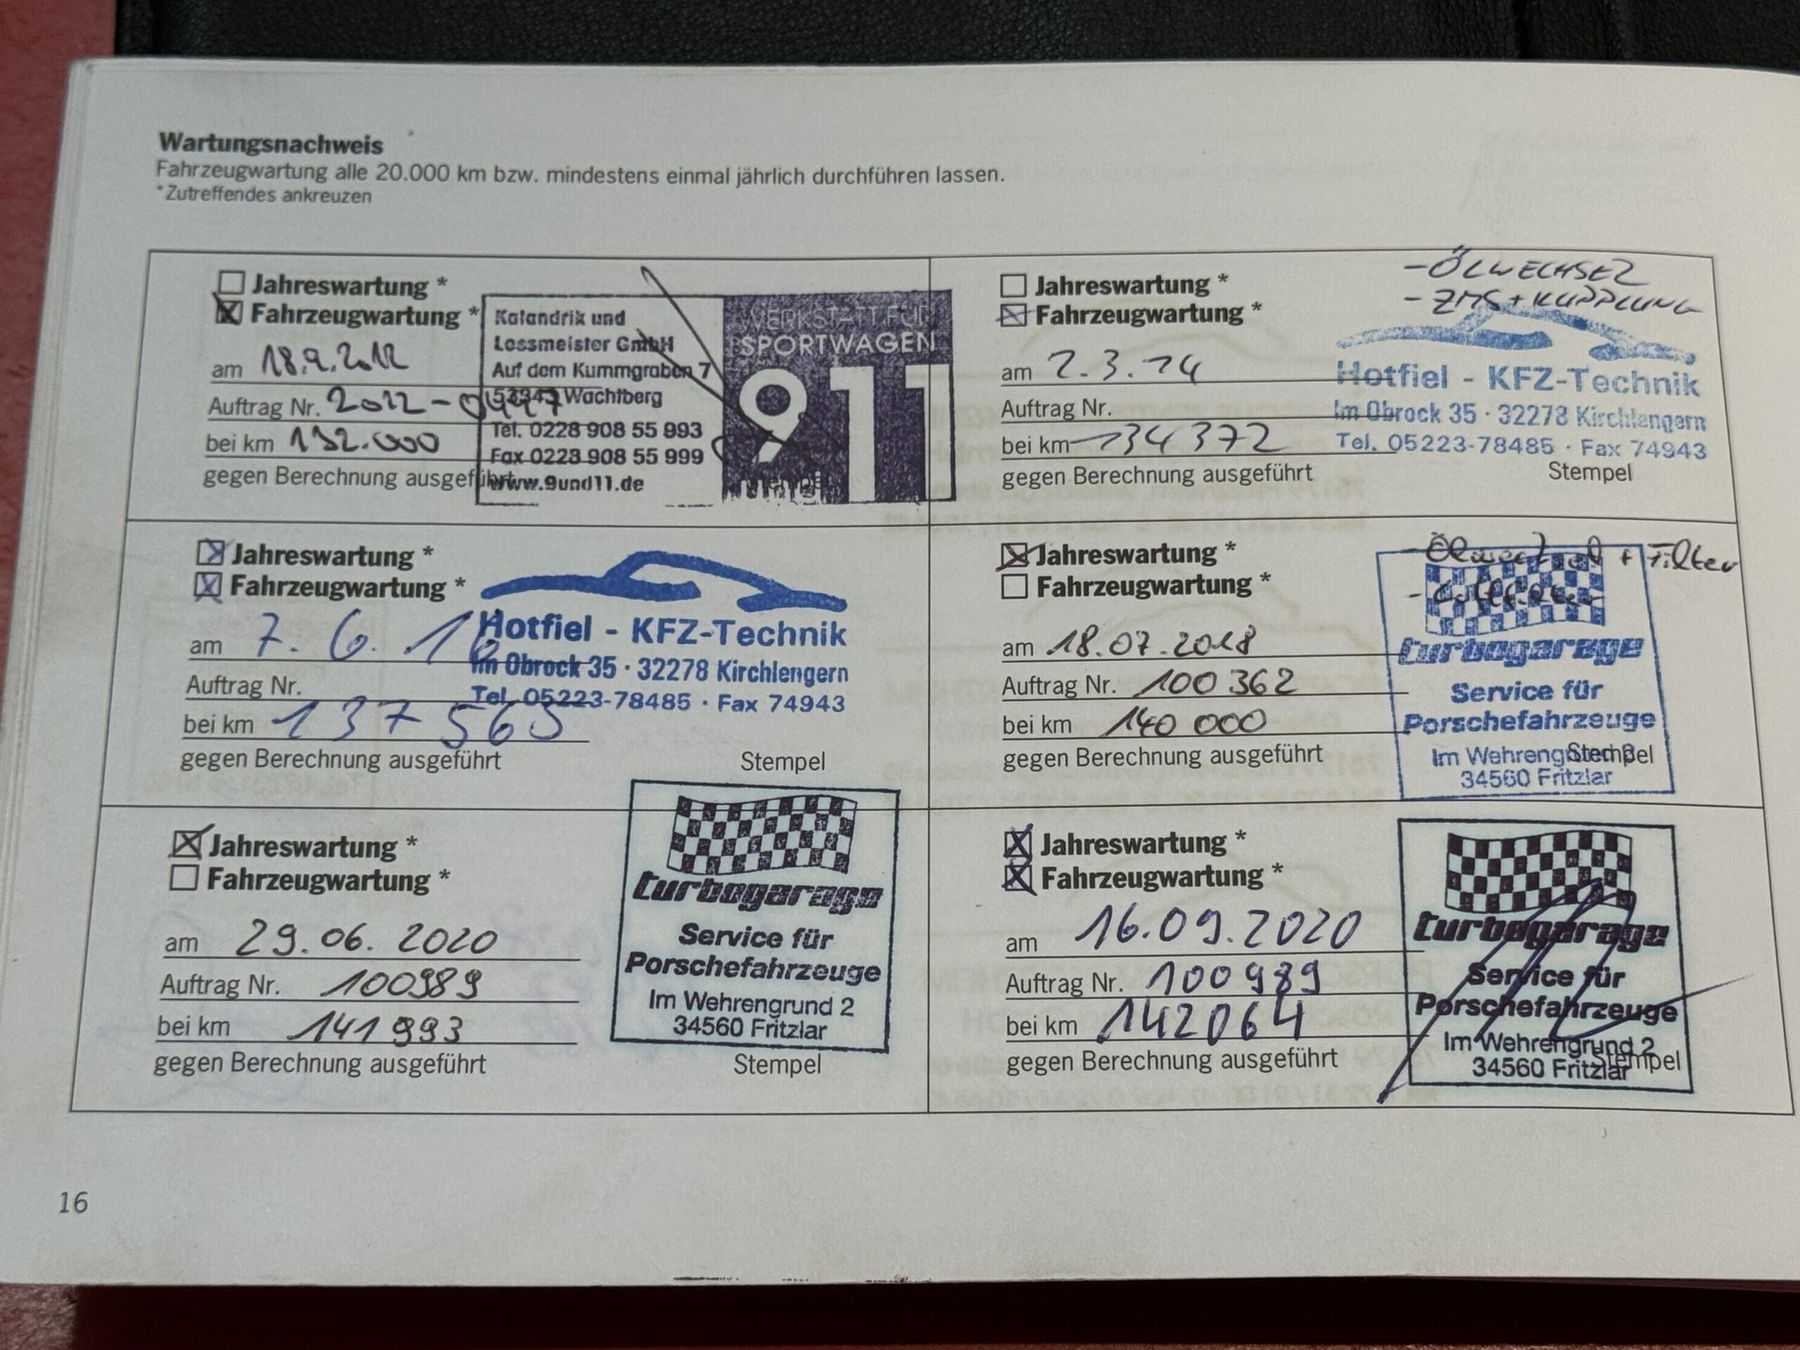 Wartungsnachweis
Fahrzeugwartung alle 20.000 km bzw. mindestens einmal jährlich durchführen lassen.
*Zutreffendes ankreuzen
Jahreswartung *
Fahrzeugwartung *
am 18.9.2012
Auftrag Nr. 2012-0447
bei km 132.000
gegen Berechnung ausgeführt
Kalandrik und
Lossmeister GmbH
Auf dem Kummgraben 7
53343 Wachtberg
Tel. 0228 908 55 993
Fax 0228 908 55 999
www.9und11.de
WERKSTATT FÜR
SPORTWAGEN
911
Stempel
Jahreswartung *
Fahrzeugwartung *
am 2.3.14
Auftrag Nr.
bei km 134372
gegen Berechnung ausgeführt
- ÖLWECHSEL
- ZMS + KUPPLUNG
Hotfiel - KFZ-Technik
Im Obrock 35 · 32278 Kirchlengern
Tel. 05223-78485 · Fax 74943
Stempel
Jahreswartung *
Fahrzeugwartung *
am 7.6.16
Auftrag Nr.
bei km 137565
gegen Berechnung ausgeführt
Hotfiel - KFZ-Technik
Im Obrock 35 · 32278 Kirchlengern
Tel. 05223-78485 · Fax 74943
Stempel
Jahreswartung *
Fahrzeugwartung *
am 18.07.2018
Auftrag Nr. 100362
bei km 140 000
gegen Berechnung ausgeführt
- Ölwechsel + Filter
- Luftfilter
turbogarage
Service für
Porschefahrzeuge
Im Wehrengrund 2
34560 Fritzlar
Stempel
Jahreswartung *
Fahrzeugwartung *
am 29.06.2020
Auftrag Nr. 100989
bei km 141993
gegen Berechnung ausgeführt
turbogarage
Service für
Porschefahrzeuge
Im Wehrengrund 2
34560 Fritzlar
Stempel
Jahreswartung *
Fahrzeugwartung *
am 16.09.2020
Auftrag Nr. 100989
bei km 142064
gegen Berechnung ausgeführt
turbogarage
Service für
Porschefahrzeuge
Im Wehrengrund 2
34560 Fritzlar
Stempel
16